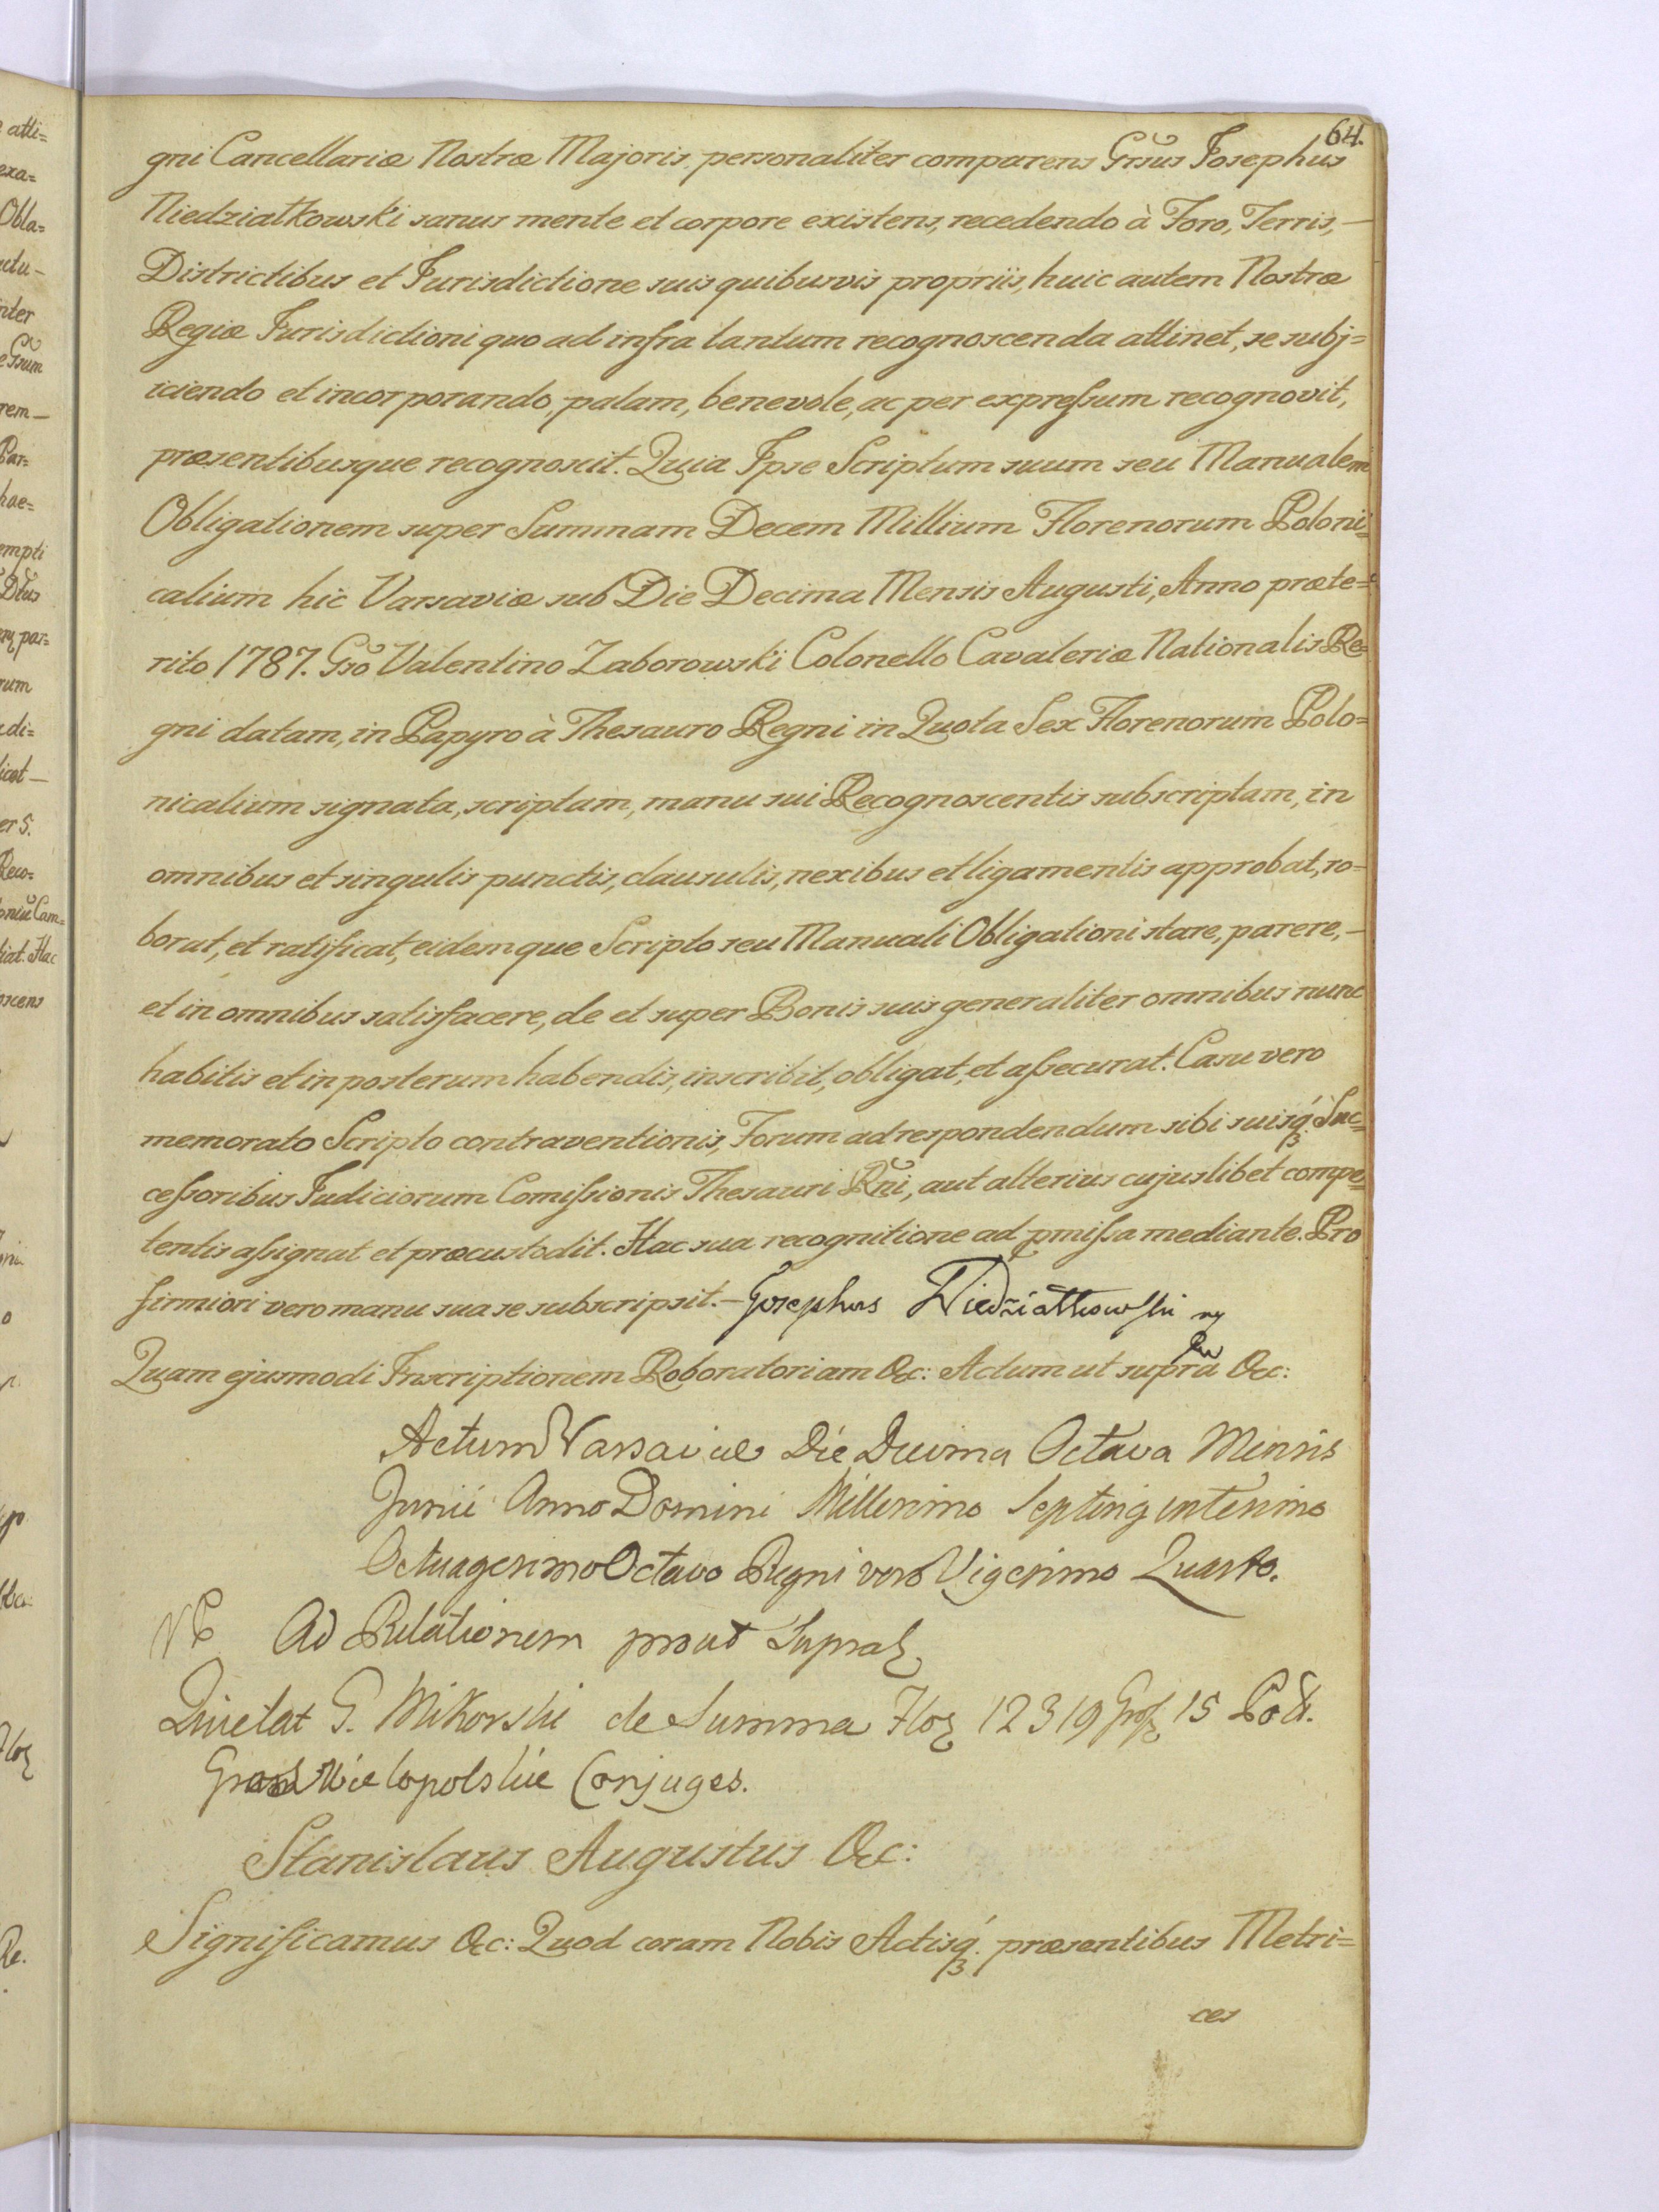 64.
gni Cancellariæ Nostræ Majoris, personaliter comparens Grsus Josephus
Niedziałkowski sanus mente et corpore existens, recedendo à Foro, Terris,—
Districtibus et Jurisdictione suis quibusvis propriis, huic autem Nostræ
Regiæ Jurisdictioni quo ad infra tantum recognoscenda attinet, se subj=
iciendo et incorporando, palam, benevole, ac per expreſsum recognovit,
præsentibusque recognoscit. Quia Ipse Scriptum suum seu Manualem
Obligationem super Summam Decem Millium Florenorum Poloni=
calium hic Varsaviæ sub Die Decima Mensis Augusti, Anno præte=
rito 1787. Gso Valentino Zaborowski Colonello Cavaleriæ Nationalis Re=
gni datam, in Papyro à Thesauro Regni in Quota Sex Florenorum Polo=
nicalium signata, scriptam, manu sui Recognoscentis subscriptam, in
omnibus et singulis punctis, clausulis, nexibus et ligamentis approbat, ro-
borat, et ratificat, eidemque Scripto seu Manuali Obligationi stare, parere,—
et in omnibus satisfacere, de et super Bonis suis generaliter omnibus nunc
habitis et in posterum habendis, inscribit, obligat, et aſsecurat. Casu vero
memorato Scripto contraventionis, Forum ad respondendum sibi suisq́ꝫ Suc=
ceſsoribus Judiciorum Comiſsionis Thesauri Rñi, aut alterius cujuslibet compe=
tentis aſsignat et præcustodit. Hac sua recognitione ad pmiſsa mediante. Pro
firmiori vero manu sua se subscripsit.— Josephus Niedziałkowski
Quam ejusmodi Inscriptionem Roboratoriam &c: Actum ut supra &c:
Actum Varsaviae Die Decima Octava Mensis
Junii Anno Domini Millesimo Septingentesimo
Octuagesimo Octavo Regni vero Vigesimo Quarto.
Ad Relationem prout Supra
Quietat G. Mikorski de Summa Flor 12319 Gros 15 Pol.
Wielopolskie Conjuges.
Stanislaus Augustus &c:
Significamus &c: Quod coram Nobis Actisq́ꝫ præsentibus Metri=
ces